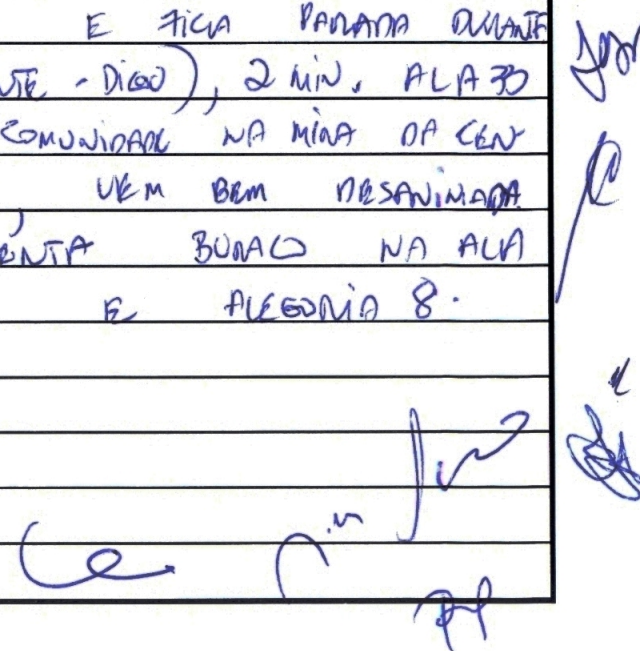 E FICA PARADA DURANTE
NTE - DIEGO), 2 MIN. ALA 33
COMUNIDADE NA MIRA DA CEN
, VEM BEM DESANIMADA
ENTA BURACO NA ALA
E ALEGORIA 8.